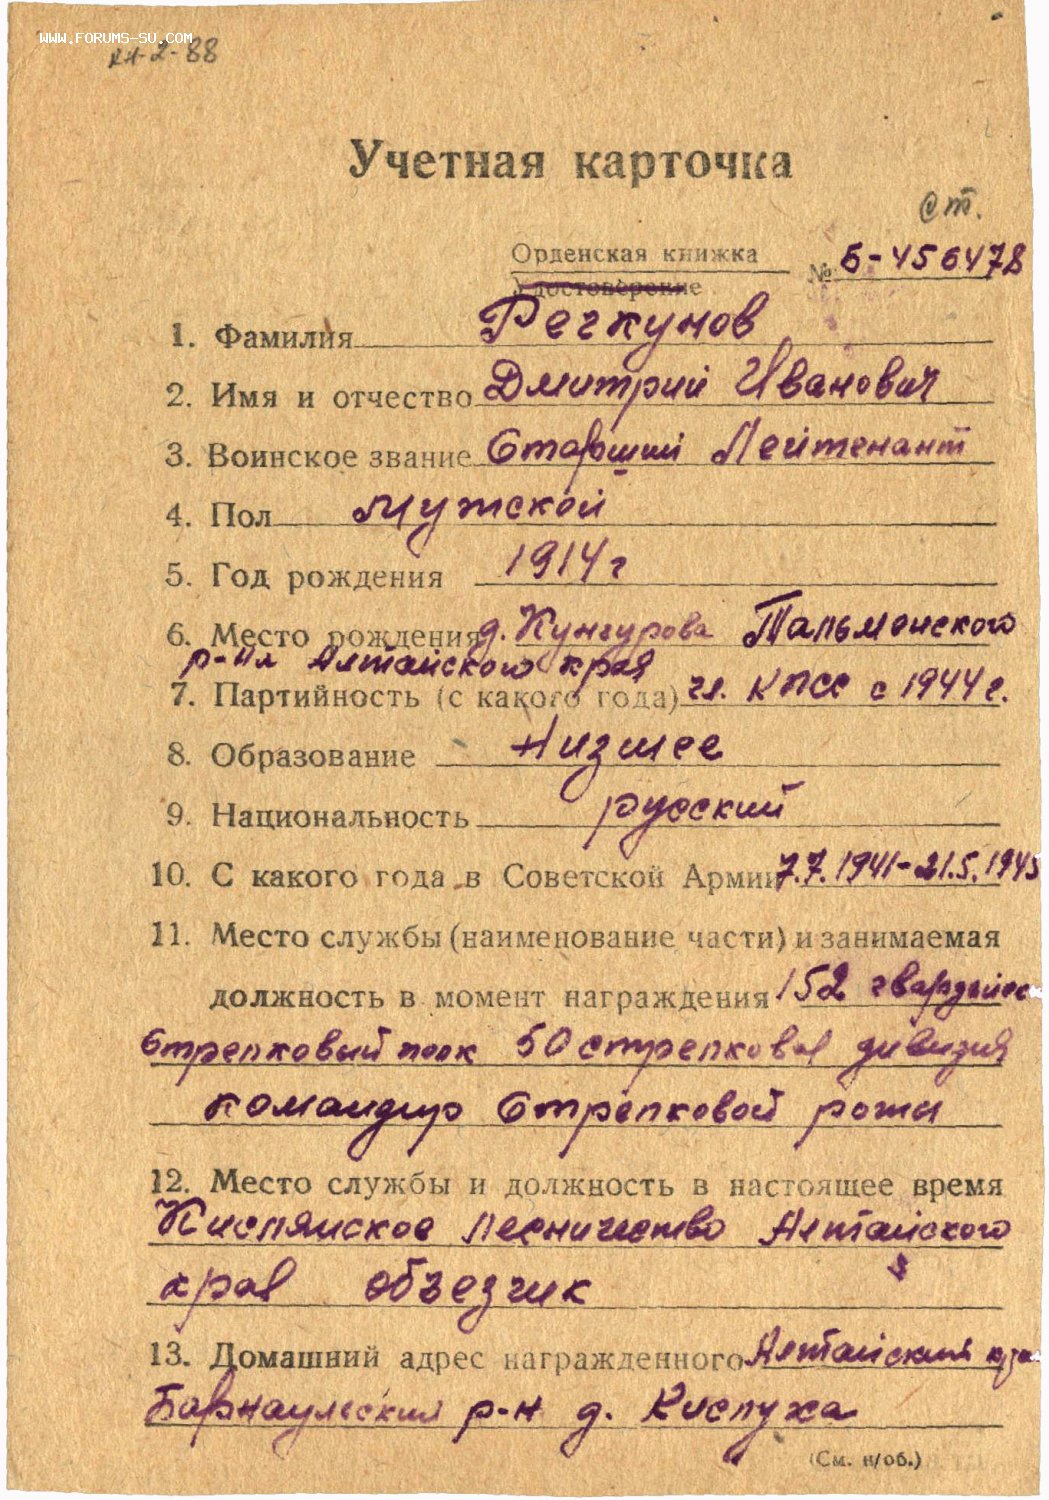 WWW.FORUMS-SU.COM
-2-88
Учетная карточка
ст.
Орденская книжка
№ Б-456478
Удостоверение
1. Фамилия Речкунов
2. Имя и отчество Дмитрий Иванович
3. Воинское звание Старший Лейтенант
4. Пол Мужской
5. Год рождения 1914г
6. Место рождения д. Кунгурова Тальменского
р-на Алтайского края
7. Партийность (с какого года) чл. КПСС с 1944г.
8. Образование Низшее
9. Национальность русский
10. С какого года в Советской Армии 7.7.1941-21.5.1945
11. Место службы (наименование части) и занимаемая
должность в момент награждения 152 гвардейс
Стрелковый полк 50 стрелковая дивизия
командир Стрелковой роты
12. Место службы и должность в настоящее время
Кислянское лесничество Алтайского
края объезчик
13. Домашний адрес награжденного Алтайский кра
Барнаульский р-н д. Кислуха
(См. н/об.)